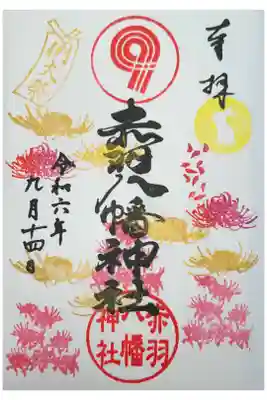 奉拝
赤羽八幡神社
令和六年
九月十四日
赤羽
八幡
神社